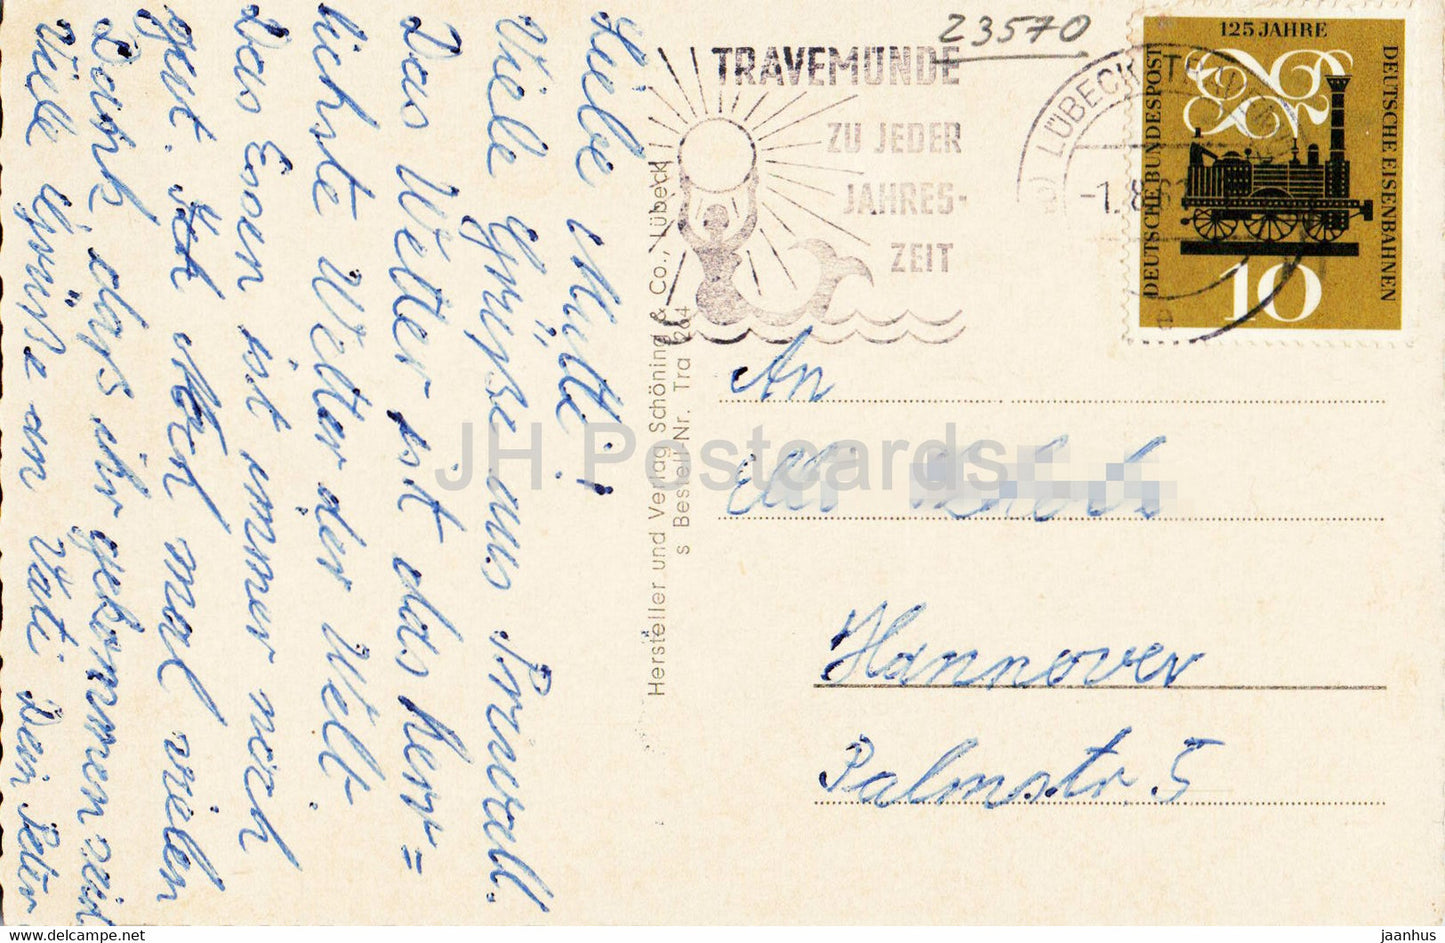 Liebe Mutti!
Viele Grüße aus Priwall.
Das Wetter ist das herr=
lichste Wetter der Welt.
Das Essen ist immer noch
gut. Ich noch mal vielen
Dank, daß ihr gekommen seid
Viele Grüße an Vati Dein Peter
Hersteller und Verlag Schöning & Co., Lübeck
s Bestell-Nr. Tra 264
23570
TRAVEMÜNDE
ZU JEDER
JAHRES-
ZEIT
LÜBECK-TRAVEMÜNDE
-1.8.6
125 JAHRE
DEUTSCHE BUNDESPOST
DEUTSCHE EISENBAHNEN
10
An
Elli
Hannover
Palmstr. 5
JH Postcards
www.delcampe.net
jaanhus